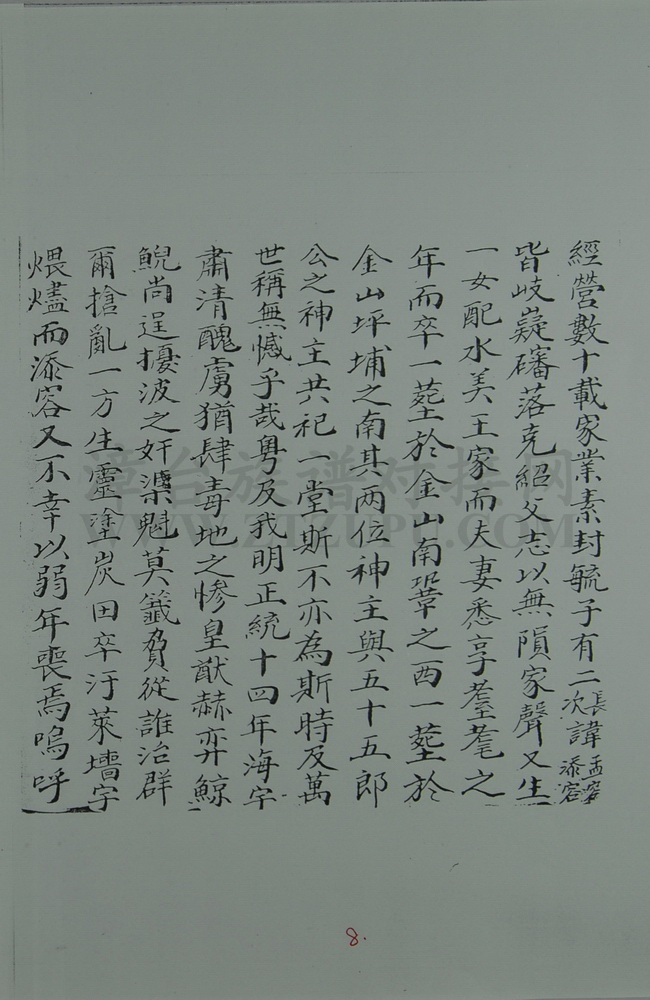 經營數十載家業素封毓子有二長諱孟容次諱添容
皆岐嶷磻落克紹父志以無隕家聲又生
一女配水美王家而夫妻悉享耋耄之
年而卒一塟於金山南犟之西一塟於
金山坪埔之南其兩位神主與五十五郎
公之神主共祀一堂斯不亦為斯時及萬
世稱無憾乎哉粤及我明正統十四年海宇
肅清醜虜猶肆毒地之慘皇猷赫弈鯨
鯢尚逞擾波之奸渠魁莫籤脅從誰治群
爾搶亂一方生靈塗炭田卒汙萊墻宇
煨燼而添容又不幸以弱年喪焉嗚呼
漳台族譜對接網
WWW.ZTZUPU.COM
8.